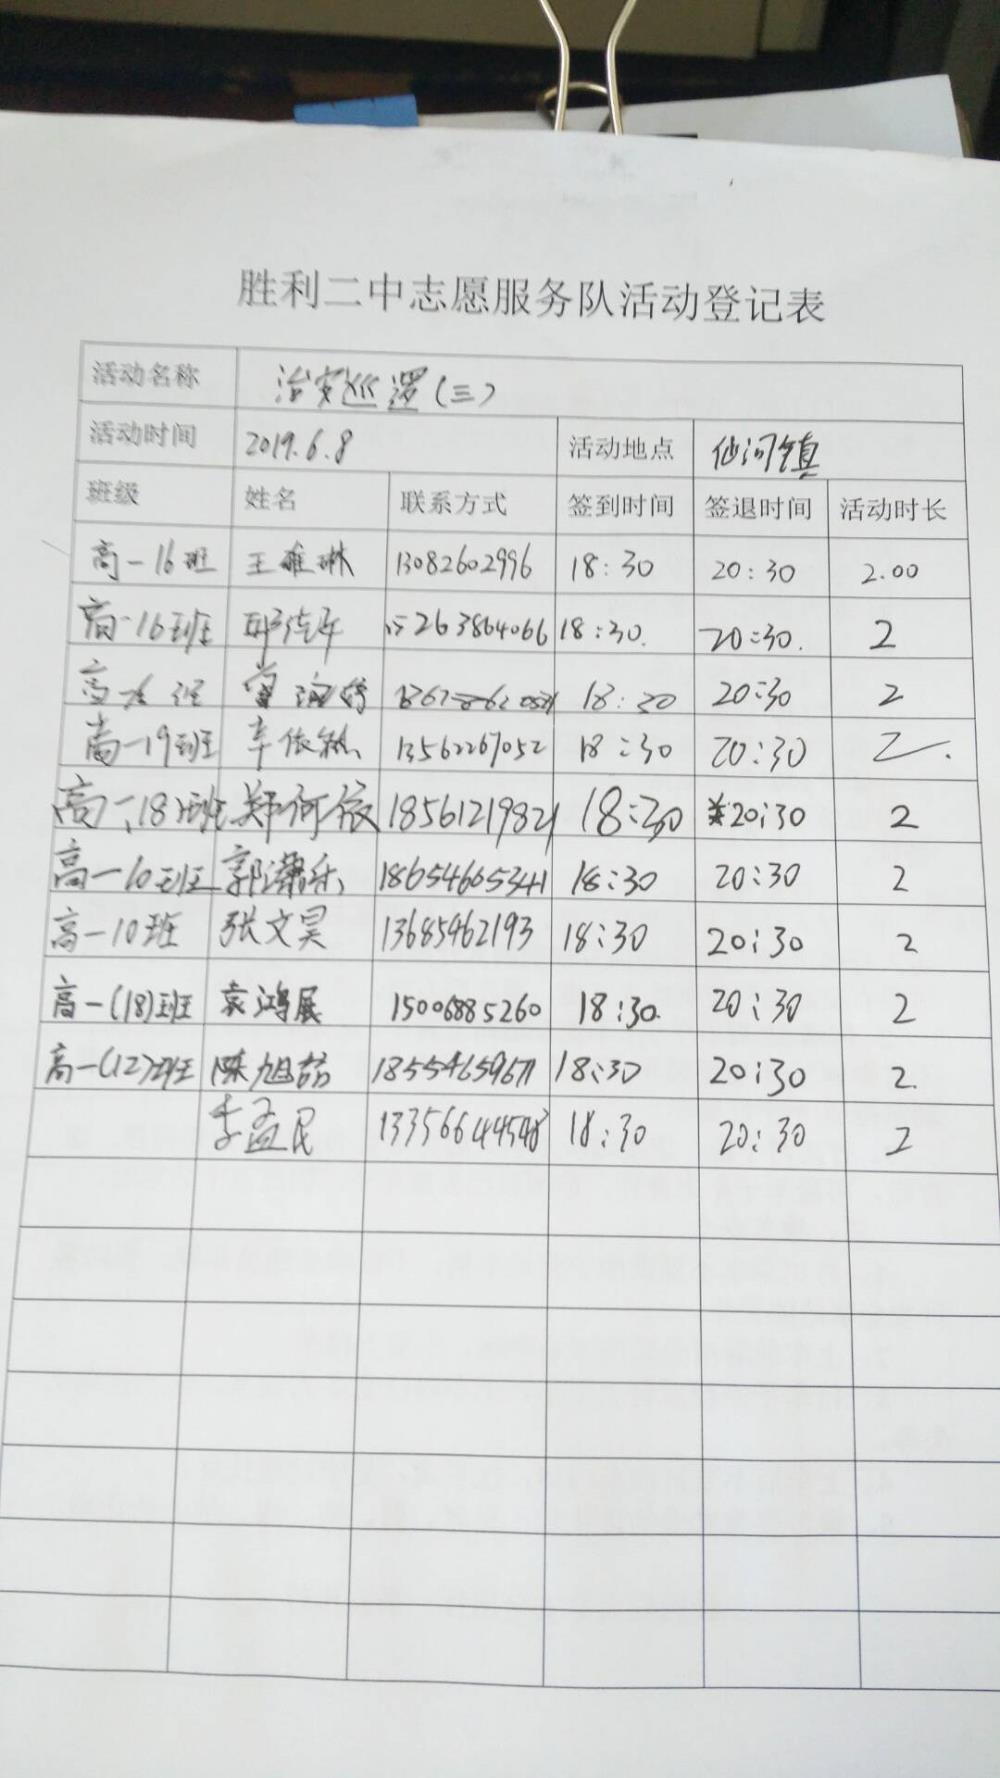 胜利二中志愿服务队活动登记表
活动名称 治安巡逻(三)
活动时间 2019.6.8 活动地点 仙河镇
班级 姓名 联系方式 签到时间 签退时间 活动时长
高一16班 王雅琳 13082602996 18:30 20:30 2.00
高一16班 15263864066 18:30. 20:30. 2
18:30 20:30 2
高一19班 13562267052 18:30 20:30 2
高一、18班 郑何依 18561219821 18:30 20:30 2
高一10班 郭潇乐 18654665341 18:30 20:30 2
高一10班 张文昊 13685462193 18:30 20:30 2
高一(18)班 袁鸿展 15006885260 18:30. 20:30 2
高一(12)班 陈旭喆 18554659671 18:30 20:30 2
李孟民 18:30 20:30 2